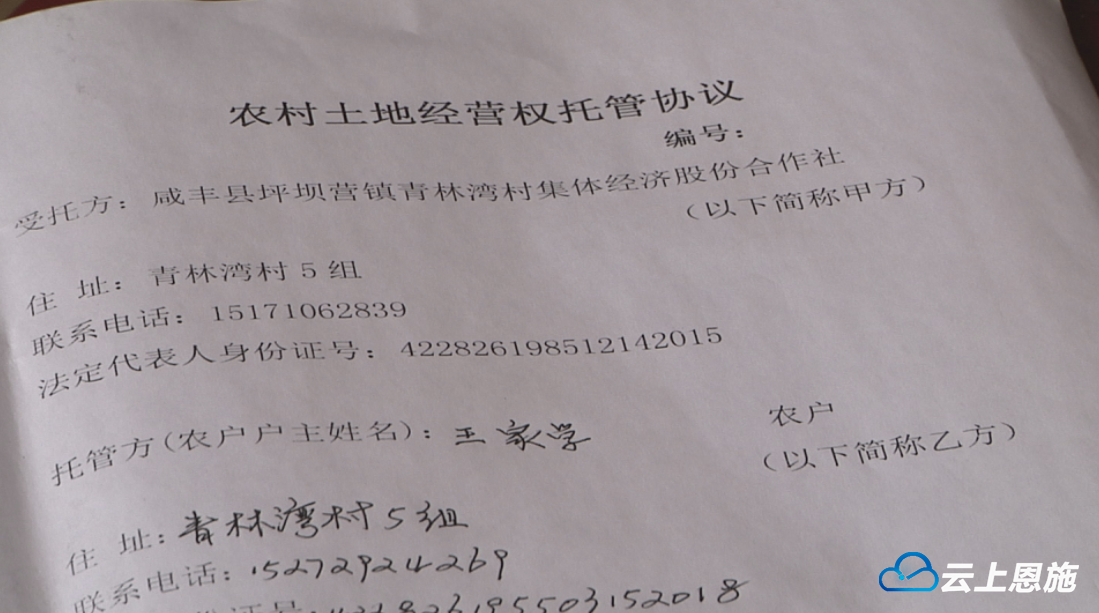 农村土地经营权托管协议
编号：
受托方：咸丰县坪坝营镇青林湾村集体经济股份合作社
（以下简称甲方）
住 址：青林湾村5组
联系电话：15171062839
法定代表人身份证号：422826198512142015
托管方（农户户主姓名）：王家学
农户
（以下简称乙方）
住 址：青林湾村5组
联系电话：15272924269
证号：422826195503152018
云上恩施